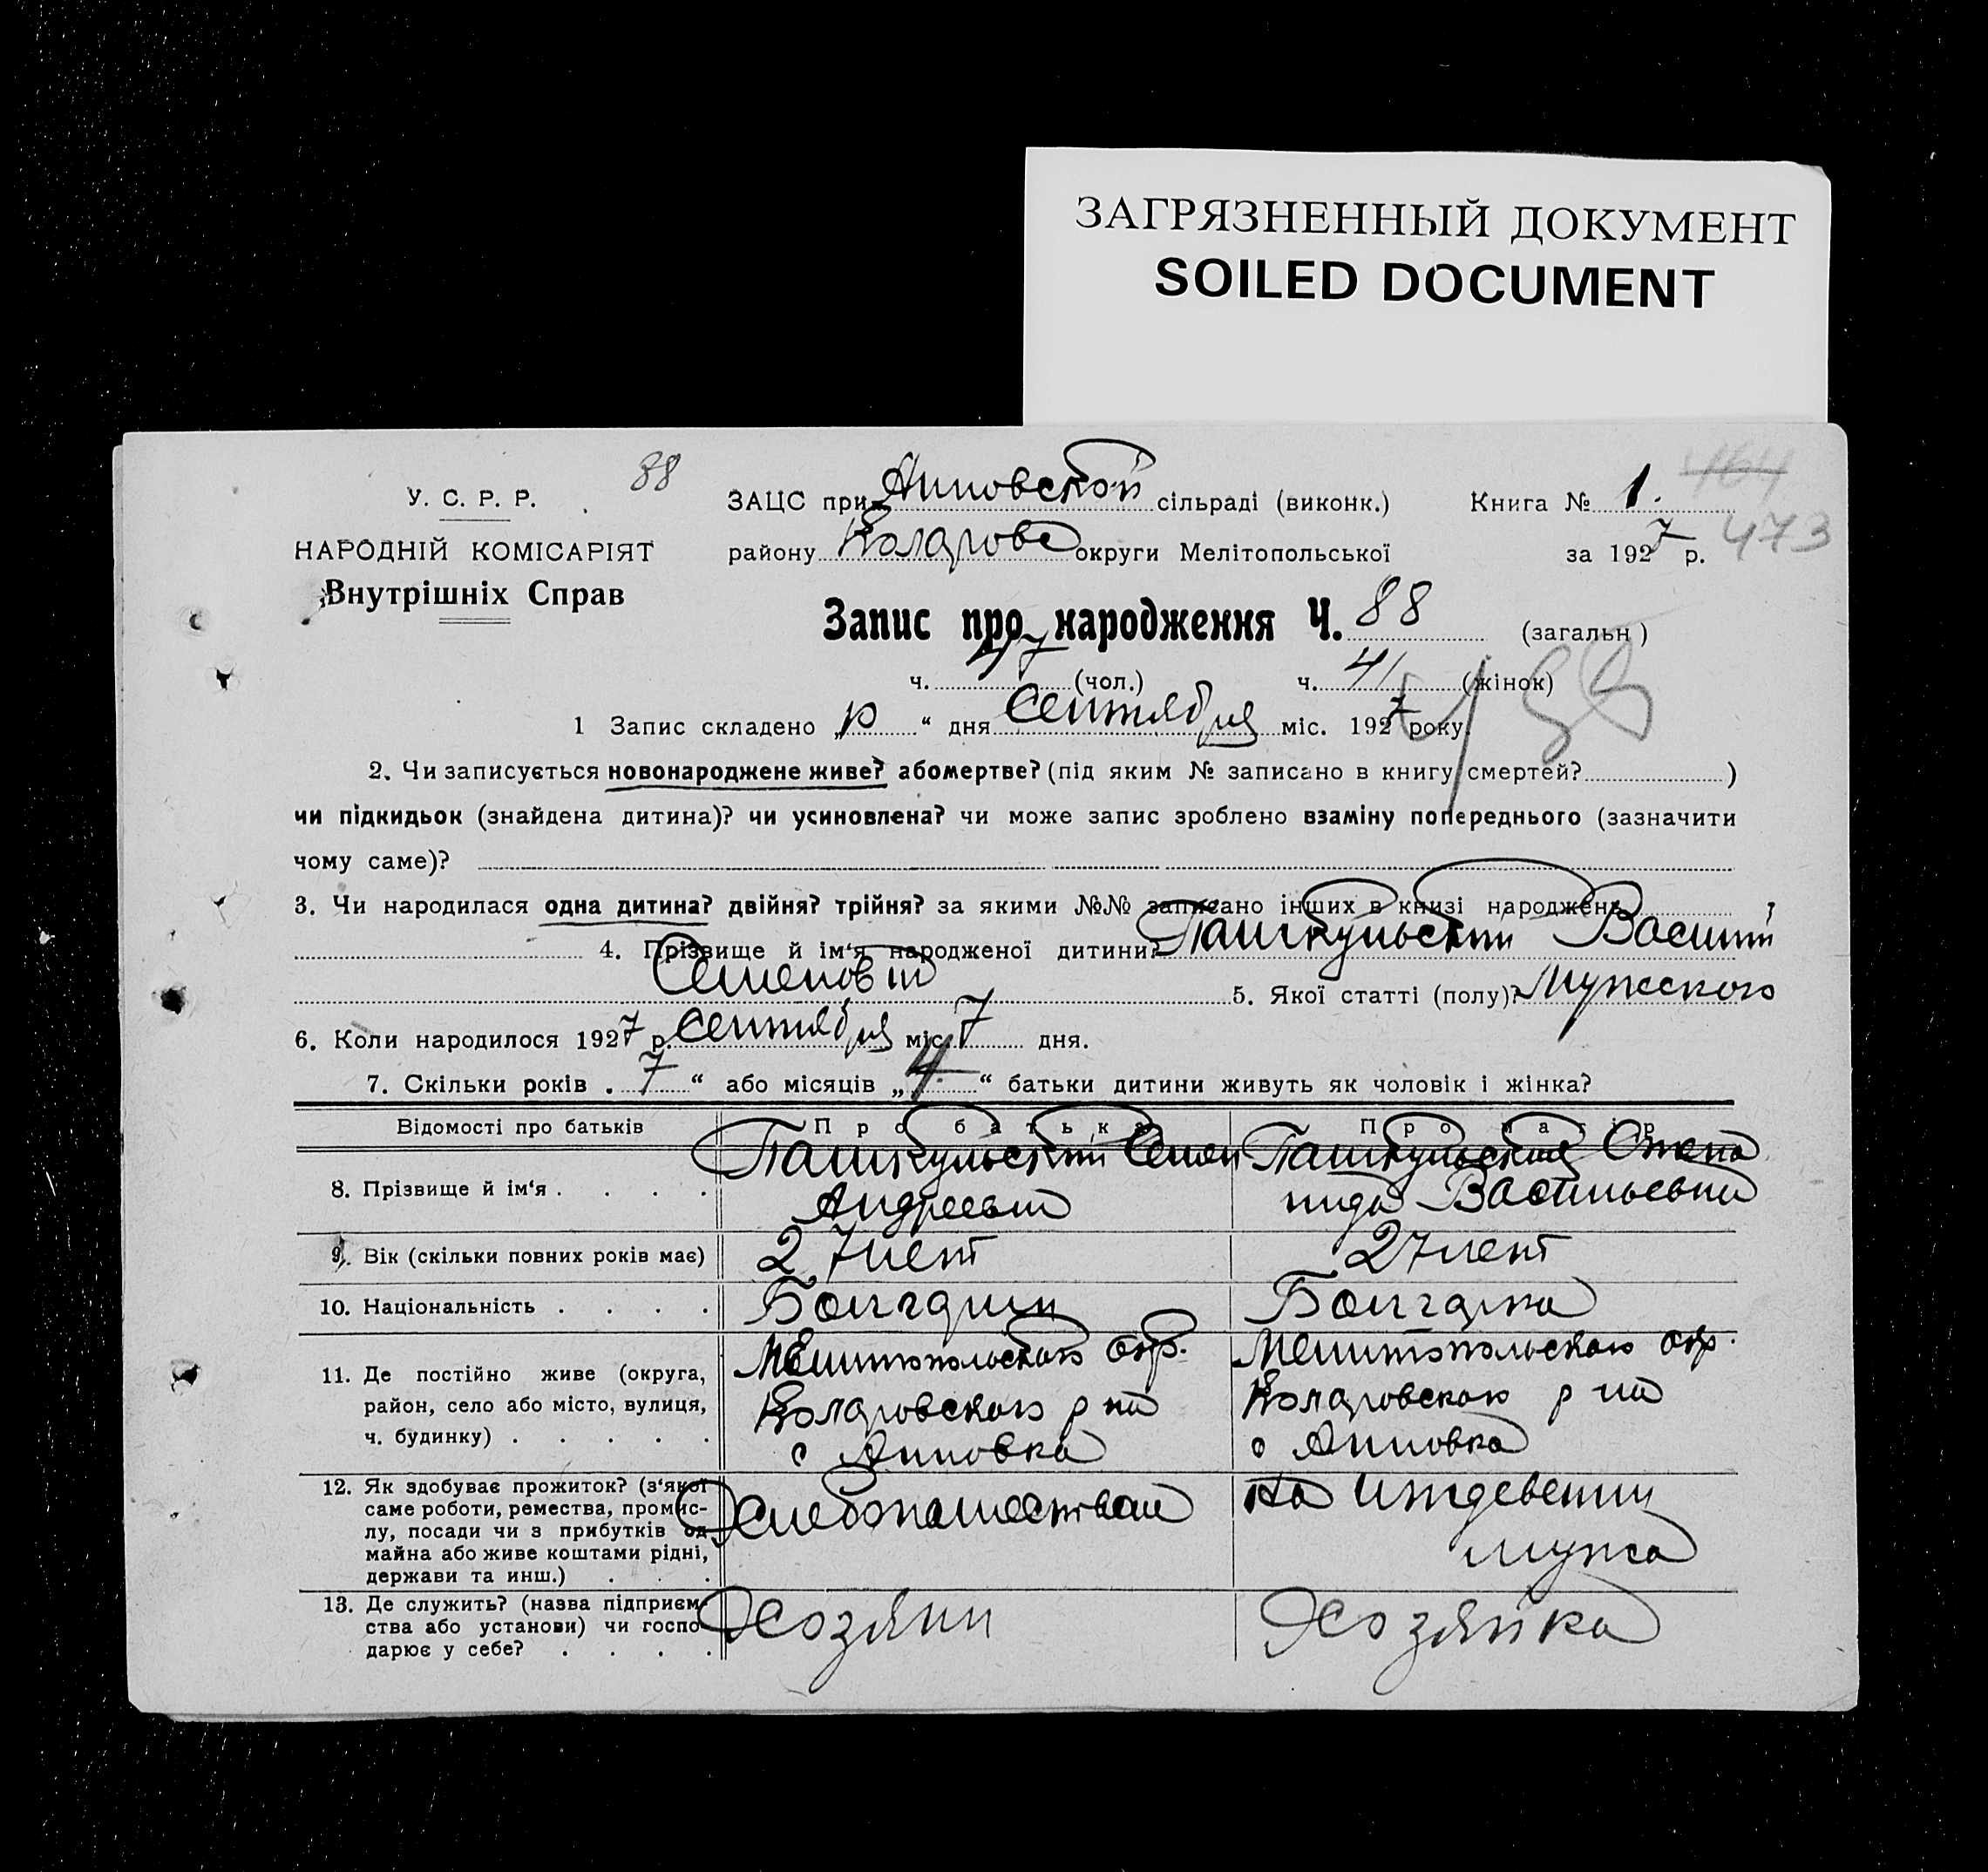 ЗАГРЯЗНЕННЫЙ ДОКУМЕНТ
SOILED DOCUMENT
У. С. Р. Р.
88
НАРОДНІЙ КОМІСАРІЯТ
Внутрішніх Справ
ЗАЦС при Анновской сільраді (виконк.) Книга № 1. 464
району Коларовс округи Мелітопольської за 1927 р. 473
Запис про народження Ч. 88 (загальн)
ч. 47 (чол.) ч. 41 (жінок) 88
1 Запис складено „10“ дня Сентября міс. 1927 року
2. Чи записується новонароджене живе? або мертве? (під яким № записано в книгу смертей? )
чи підкидьок (знайдена дитина)? чи усиновлена? чи може запис зроблено взаміну попереднього (зазначити
чому саме)?
3. Чи народилася одна дитина? двійня? трійня? за якими №№ записано інших в книзі народжень ?
4. Прізвище й ім‘я народженої дитини? Пашкульский Василий
Семенович 5. Якої статті (полу)? Мужеского
6. Коли народилося 1927 р. Сентября міс. 7 дня.
7. Скільки років „7“ або місяців „4“ батьки дитини живуть як чоловік і жінка?
Відомості про батьків Про батька Про матір
8. Прізвище й ім‘я . . . . Пашкульский Семен Пашкульская
Андреевич Васильевна
9. Вік (скільки повних років має) 27 лет 27 лет
10. Національність . . . . Болгарин Болгарка
11. Де постійно живе (округа, район, село або місто, вулиця, ч. будинку) . . . . .
Мелитопольского окр. Мелитопольского окр.
Коларовского р на Коларовского р на
с Анновка с Анновка
12. Як здобуває прожиток? (з‘якої саме роботи, ремества, промислу, посади чи з прибутків од майна або живе коштами рідні, держави та инш.) . . .
Хлебопашеством На иждевении
мужа
13. Де служить? (назва підприємства або установи) чи господарює у себе? . . . .
Хозяин Хозяйка